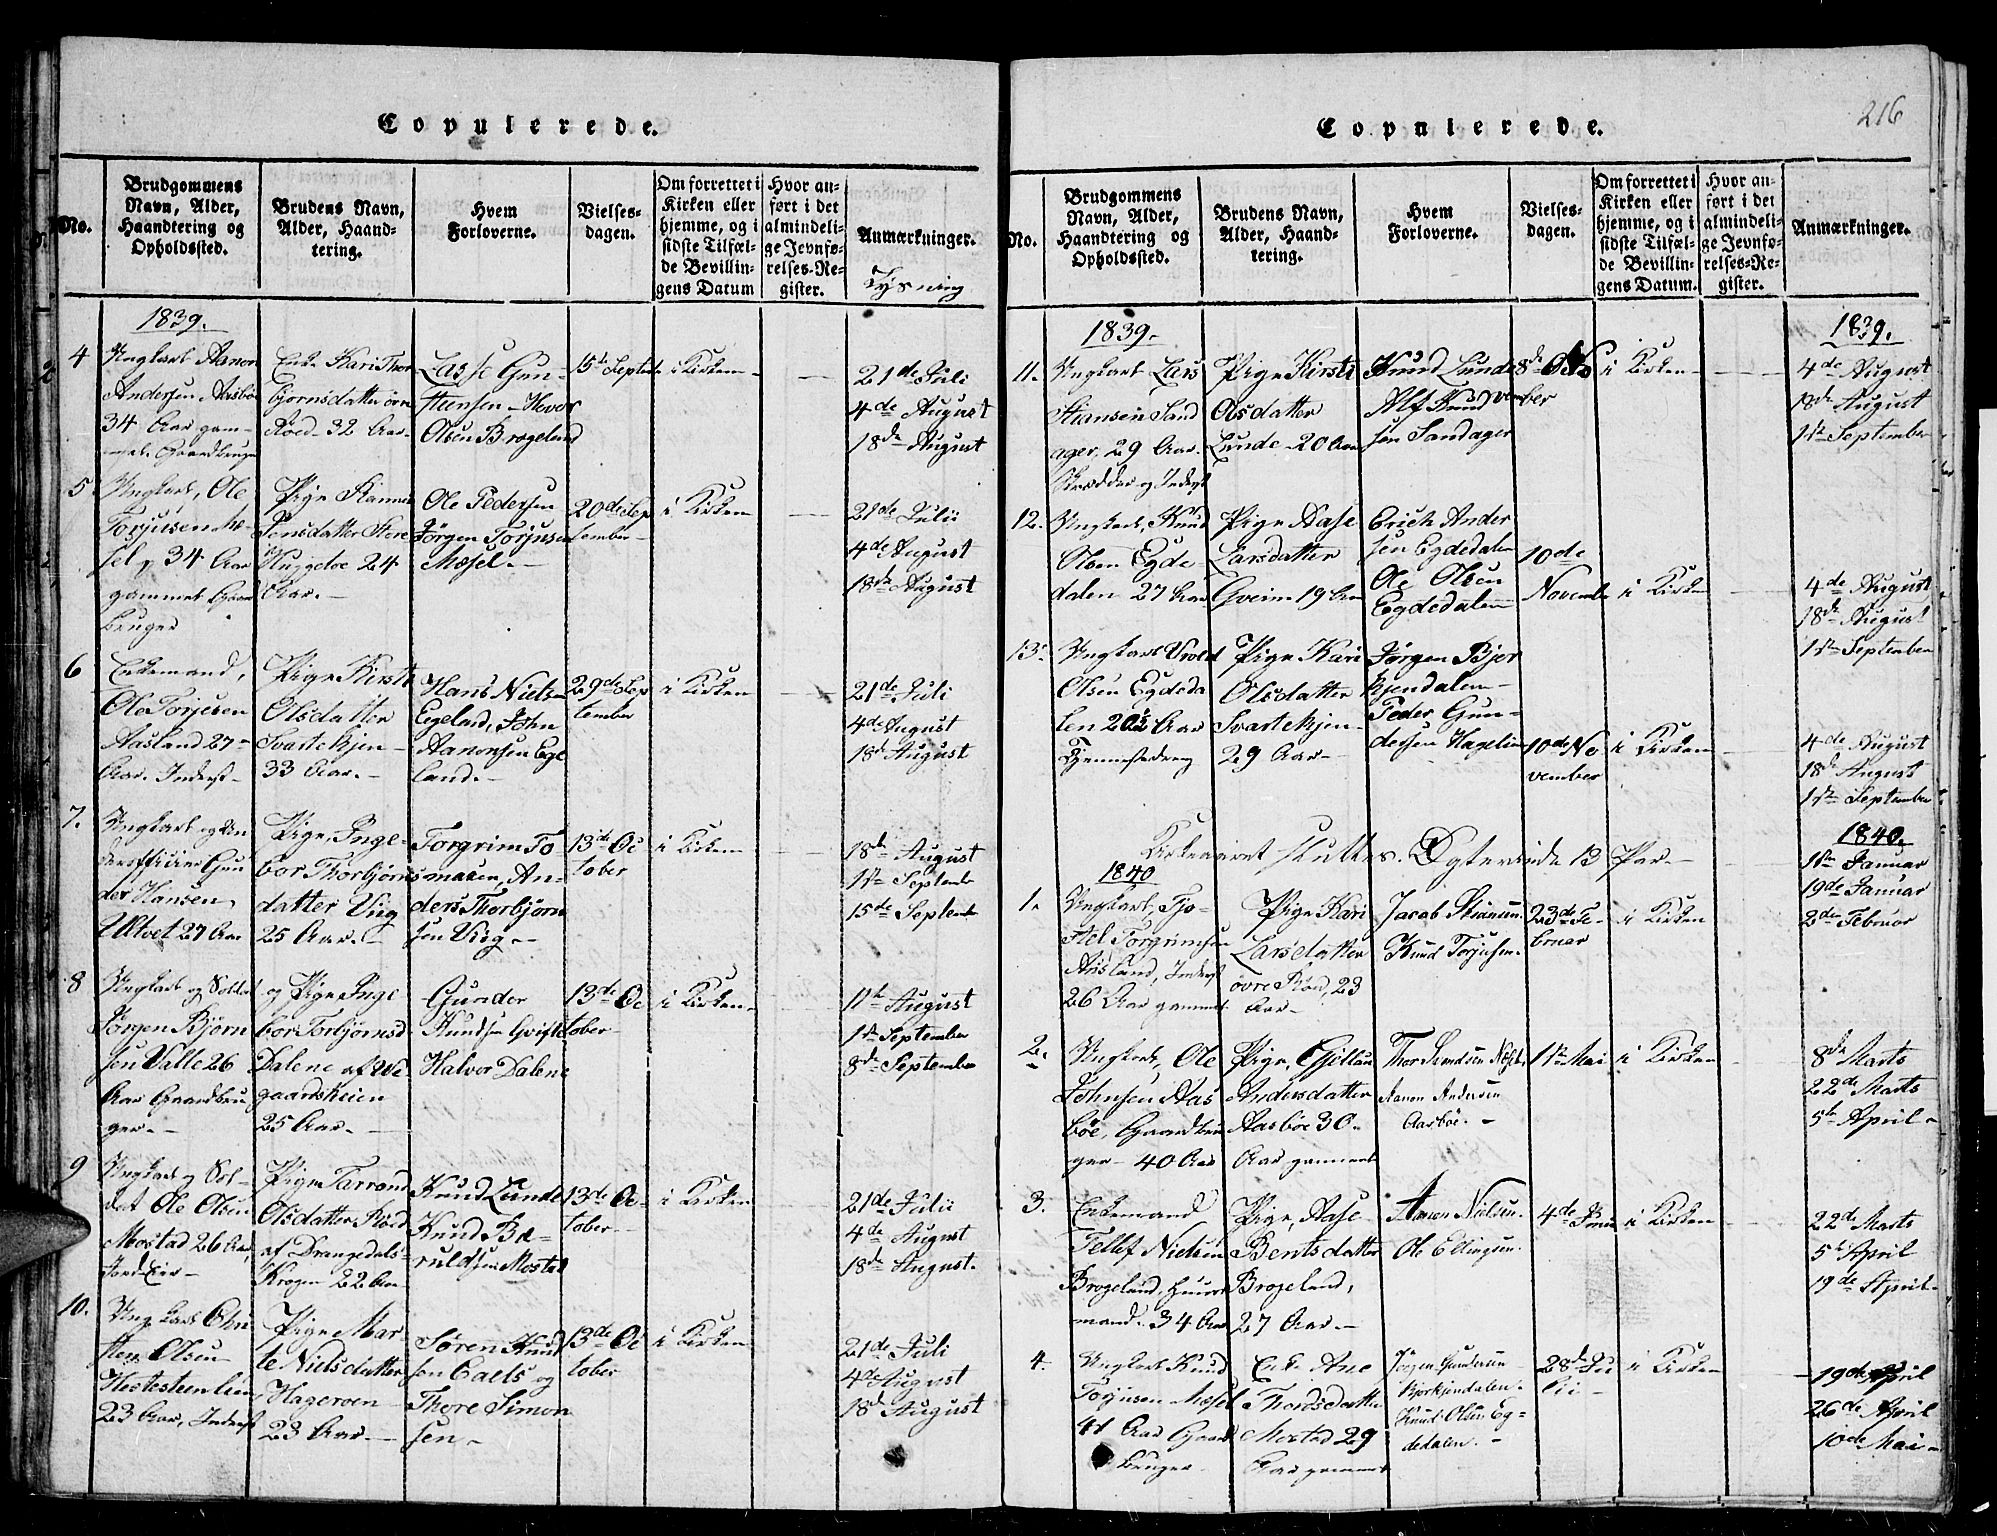 Copulerede.
No.
Brudgommens
Navn, Alder,
Haandtering og
Opholdssted.
Brudens Navn,
Alder, Haand-
tering.
Hvem
Forloverne.
Vielses-
dagen.
Om forrettet i
Kirken eller
hjemme, og i
sidste Tilfæl-
de Bevillin-
gens Datum
Hvor an-
ført i det
almindeli-
ge Jevnfø-
relses-Re-
gister.
Anmærkninger.
Lysning
1839.
4
Ungkarl Aanon
Andersen Aasböe
34 Aar gam-
Gaardbruger
Enke Kari Thor
bjornsdatter övre
Röed 32 Aar.
Lasse Gun-
steensen - Hever
Olsen Brogeland
15de Septembr
i Kirken
21de Juli
4de August
18de August
5
Ungkarl, Ole
Torjusen Mo-
sel, 34 Aar
gammel Gaard
bruger
Pige
Jensdatter
Huggeloe 24
Aar.-
Ole Pedersen
Jörgen Torjusen
Mosel.-
20de Sep
tember
i Kirken
21de Julii
4de August
18de August
6
Enkemand,
Ole Torjesen
Aasland 27
Aar. Inderst-
Pige Kirsti
Olsdatter
Svartekjen-
33 Aar.-
Hans Niels
Egeland, John
Aanonsen Ege
land.-
29de Sep
tember
i Kirken
21de Juli
4de August
18de August
7.
Ungkarl og Un
derofficier Gun
der Hansen
Ultvet 27 Aar
Pige, Inge-
bor Thorbjörns
datter Viig
25 Aar.-
Torgrim To-
masen, An-
ders Thorbjörn
sen Viig.-
13de Oc
tober
i Kirken
18de August
1ste Septembr
15de Septembr
8
Ungkarl og Soldat
Jörgen Björn
sen Valle 26
Aar Gaardbru
ger.-
og Pige Inge
bor Torbjörnsd
Dalene af We
gaardsheien
25 Aar.-
Gunder
Knudsen
Halvor Dalene
13de Oc
tober-
i Kirken
11te August
1ste September
8de September
9
Ungkarl og Sol-
dat Ole Olsen
Mostad 26 Aar,
Jord Eier-
Pige Tarrand
Olsdatter Röed
af Drangedals-
Krogen 22 Aar
Knud Lunde
Knud Bæ-
ruldsen Mostad
13de Oc-
tober-
i Kirken
21de Julii
4de August
18de August.
10.
Ungkarl Chri
sten Olsen
Hestesteenlien
23 Aar, Inderst
Pige Mar
te Nielsdatter
Hageroen
23 Aar.-
Sören Knud
sen Caels og
Thore Simon
sen-
13de Oc
tober
i Kirken
21de Juli
4de August
18de August
216
Copulerede.
No.
Brudgommens
Navn, Alder,
Haandtering og
Opholdssted.
Brudens Navn,
Alder, Haand-
tering.
Hvem
Forloverne.
Vielses-
dagen.
Om forrettet i
Kirken eller
hjemme, og i
sidste Tilfæl-
de Bevillin-
gens Datum.
Hvor an-
ført i det
almindeli-
ge Jevnfø-
relses-Re-
gister.
Anmærkninger.
1839.
1839.
11.
Ungkarl Lars
Stiansen Sand
ager. 29 Aar.
Skrædder og Inderst
Pige Kirsti
Olsdatter
Lunde 20 Aar
Knud Lunde
Alf Knud
sen Sandager
8de No
vember
i Kirken
4de August
18de August
1ste September
12.
Ungkarl, Knud
Olsen Egde
dalen 27 Aar
Pige Aase
Larsdatter
Gveim 19 Aar
Erich Ander
sen Egdedalen
Ole Olsen
Egdedalen
10de
November
i Kirken
4de August
18de August
1ste September
13.
Ungkarl Wrold
Olsen Egdeda
len 20½ Aar
Pige Kari
Olsdatter
Svartekjen-
29 Aar-
Jörgen Bjer
kjendalen-
Peder Gun-
dersen Hagelien
10de No
vember
i Kirken
4de August
18de August
1ste September
Kirkeaaret sluttes. Ægteviede 13 Par.-
1840
1840.
1.
Ungkarl, Tjo-
stel Torgrimsen
Aasland, Inderst
26 Aar gammel
Pige Kari
Larsdatter
övre Röed, 23
Aar-
Jacob Stiansen.
Knud Torjusen.
23de Fe-
bruar
i Kirken
1ste Januar
19de Januar
2den Februar
2.
Ungkarl, Ole
Johnsen Aas
böe, Gaardbru
ger- 40 Aar
Pige,
Andersdatter
Aasböe 30
Aar gammel
Aanon Andersen
Aasböe.-
1ste Mai
i Kirken
8de Marts
22de Marts
5te April-
3.
Enkemand
Tellef Nielsen
Brogeland, Huus
mand. 34 Aar
Pige, Aase
Bentsdatter
Brogeland,
27 Aar.-
Aanon Nielsen.
Ole Ellingsen.
4de Juni
i Kirken
22de Marts
5te April
19de April-
4.
Ungkarl Knud
Torjusen Mosel
41 Aar Gaard
bruger.
Enke Ane
Thordsdatter
Mostad 29
Aar gammel
Jörgen Gundersen
Bjorkjendalen.
Knud Olsen Eg-
dedalen.-
28de Ju
lii-
i Kirken
19de April
26de April
10de Mai-